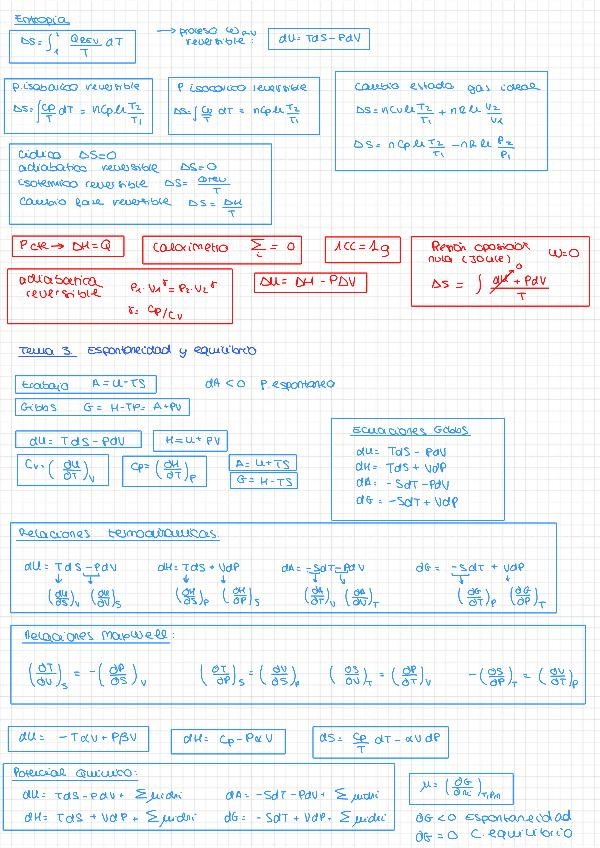 Entropía
ΔS = ∫₁² Q_REV/T dT → proceso ω_REV reversible: dU = TdS - PdV
P. isobárico reversible
ΔS = ∫ Cp/T dT = n Cp ln T₂/T₁
P isocórico reversible
ΔS = ∫ Cv/T dT = n Cp ln T₂/T₁
Cambio estado gas ideal
ΔS = n Cv ln T₂/T₁ + n R ln V₂/V₁
ΔS = n Cp ln T₂/T₁ - n R ln P₂/P₁
Cíclico ΔS = 0
adiabático reversible ΔS = 0
isotérmico reversible ΔS = Q_REV/T
Cambio fase reversible ΔS = ΔH/T
P cte → ΔH = Q
Calorímetro Σᵢ = 0
1CC = 1g
Presión oposición
nula (Joule) ω = 0
ΔS = ∫ (dU + PdV)/T
0
adiabática
reversible
P₁·V₁^γ = P₂·V₂^γ
γ = Cp/Cv
ΔU = ΔH - PΔV
Tema 3. Espontaneidad y equilibrio
trabajo A = U - TS dA < 0 P. espontáneo
Gibbs G = H - TP = A + PV
dU = TdS - PdV
H = U + PV
Cv = (∂U/∂T)_V
Cp = (∂H/∂T)_P
A = U + TS
G = H - TS
Ecuaciones Gibbs
dU = TdS - PdV
dH = TdS + VdP
dA = -SdT - PdV
dG = -SdT + VdP
Relaciones termodinámicas
dU = TdS - PdV dH = TdS + VdP dA = -SdT - PdV dG = -SdT + VdP
(∂U/∂S)_V (∂U/∂V)_S (∂H/∂S)_P (∂H/∂P)_S (∂A/∂T)_V (∂A/∂V)_T (∂G/∂T)_P (∂G/∂P)_T
Relaciones Maxwell:
(∂T/∂V)_S = -(∂P/∂S)_V (∂T/∂P)_S = (∂V/∂S)_P (∂S/∂V)_T = (∂P/∂T)_V -(∂S/∂P)_T = (∂V/∂T)_P
dU = -TαV + PβV
dH = Cp - PαV
dS = Cp/T dT - αVdP
Potencial Químico:
dU = TdS - PdV + Σμᵢdnᵢ dA = -SdT - PdV + Σμᵢdnᵢ
dH = TdS + VdP + Σμᵢdnᵢ dG = -SdT + VdP + Σμᵢdnᵢ
μ = (∂G/∂nᵢ)_T,P,n
∂G < 0 Espontaneidad
∂G = 0 C. equilibrio